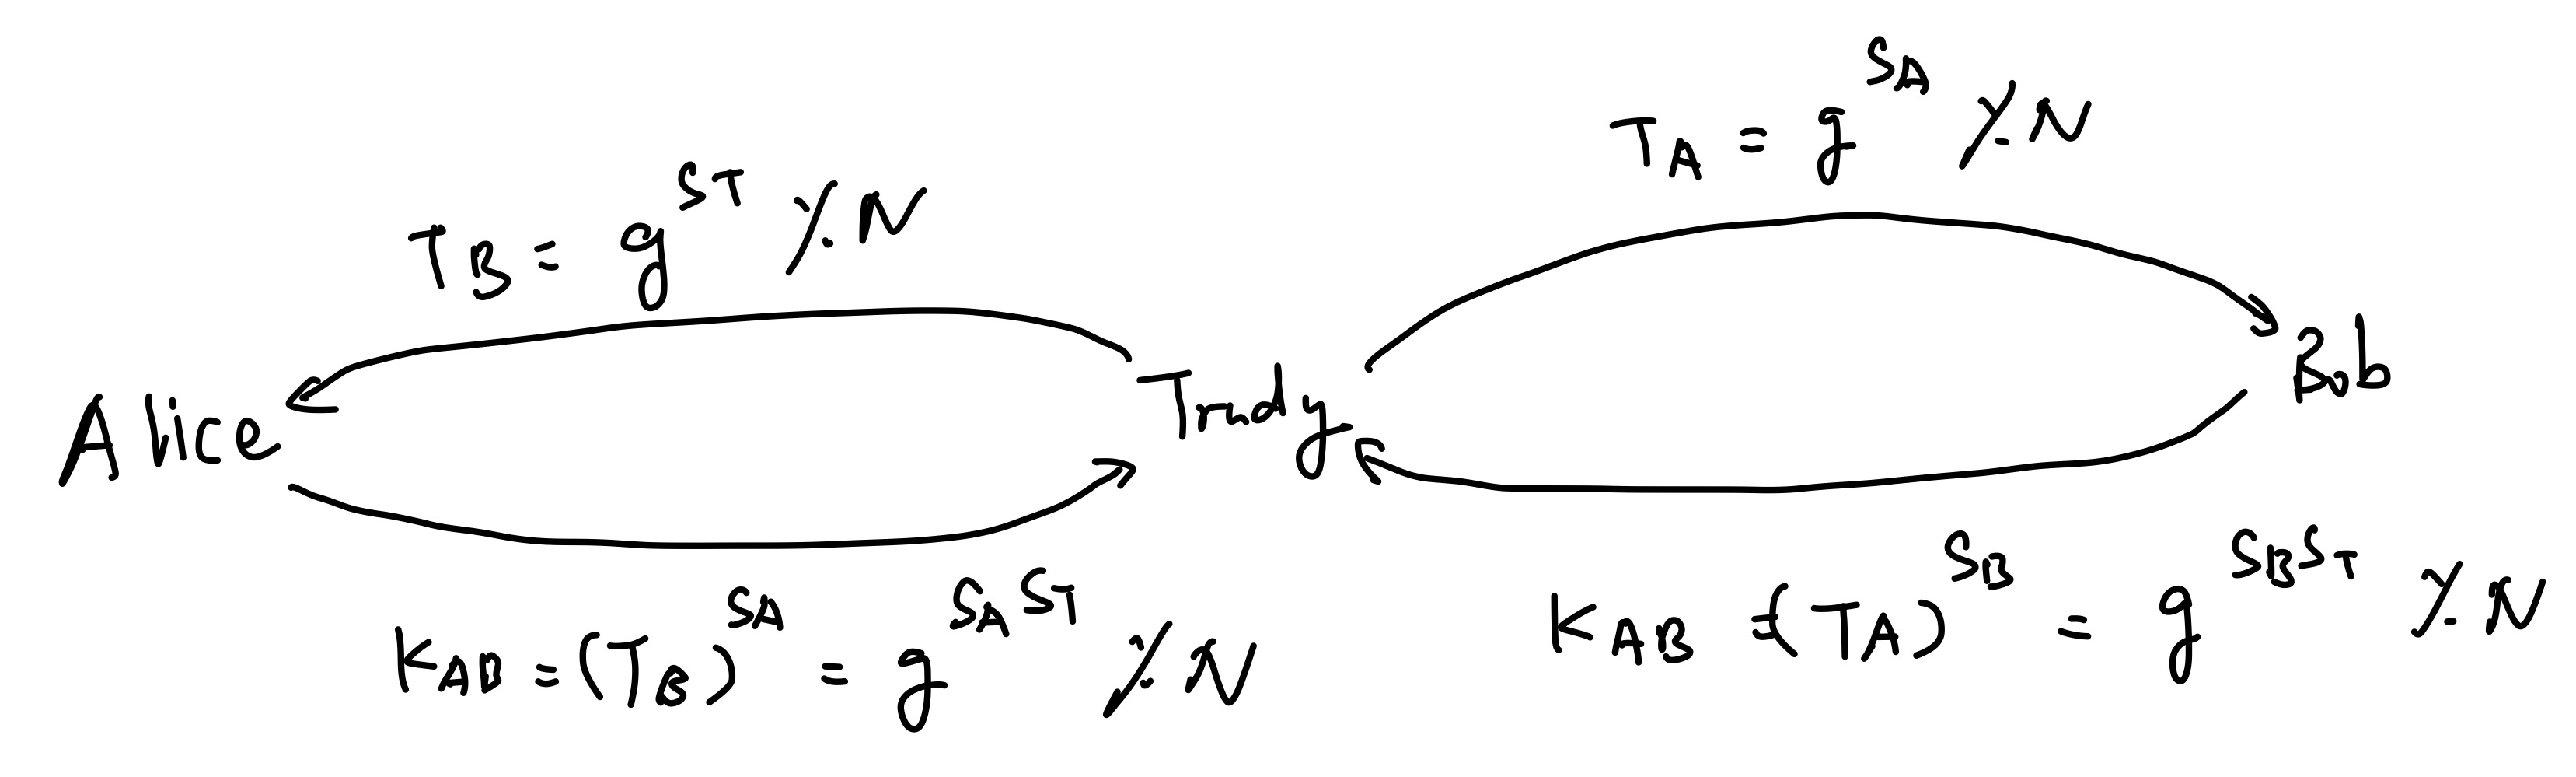 T_A = g^{S_A} % N
T_B = g^{S_T} % N
Alice Trudy Bob
K_{AB} = (T_B)^{S_A} = g^{S_A S_T} % N
K_{AB} = (T_A)^{S_B} = g^{S_B S_T} % N